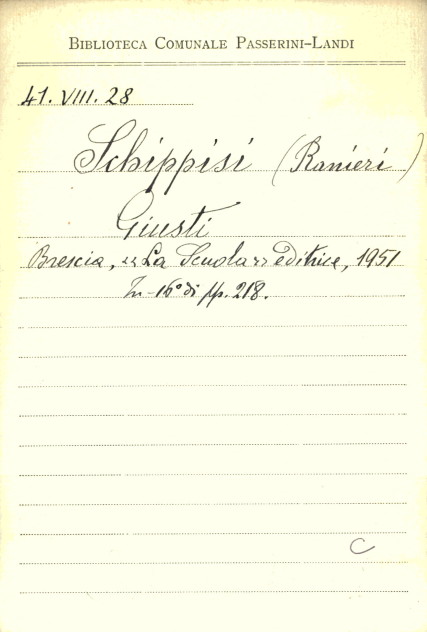 BIBLIOTECA COMUNALE PASSERINI-LANDI
41. VIII. 28
Schippisi (Ranieri)
Giusti
Brescia, «La Scuola» Editrice, 1951
In-16° di pp. 218.
C